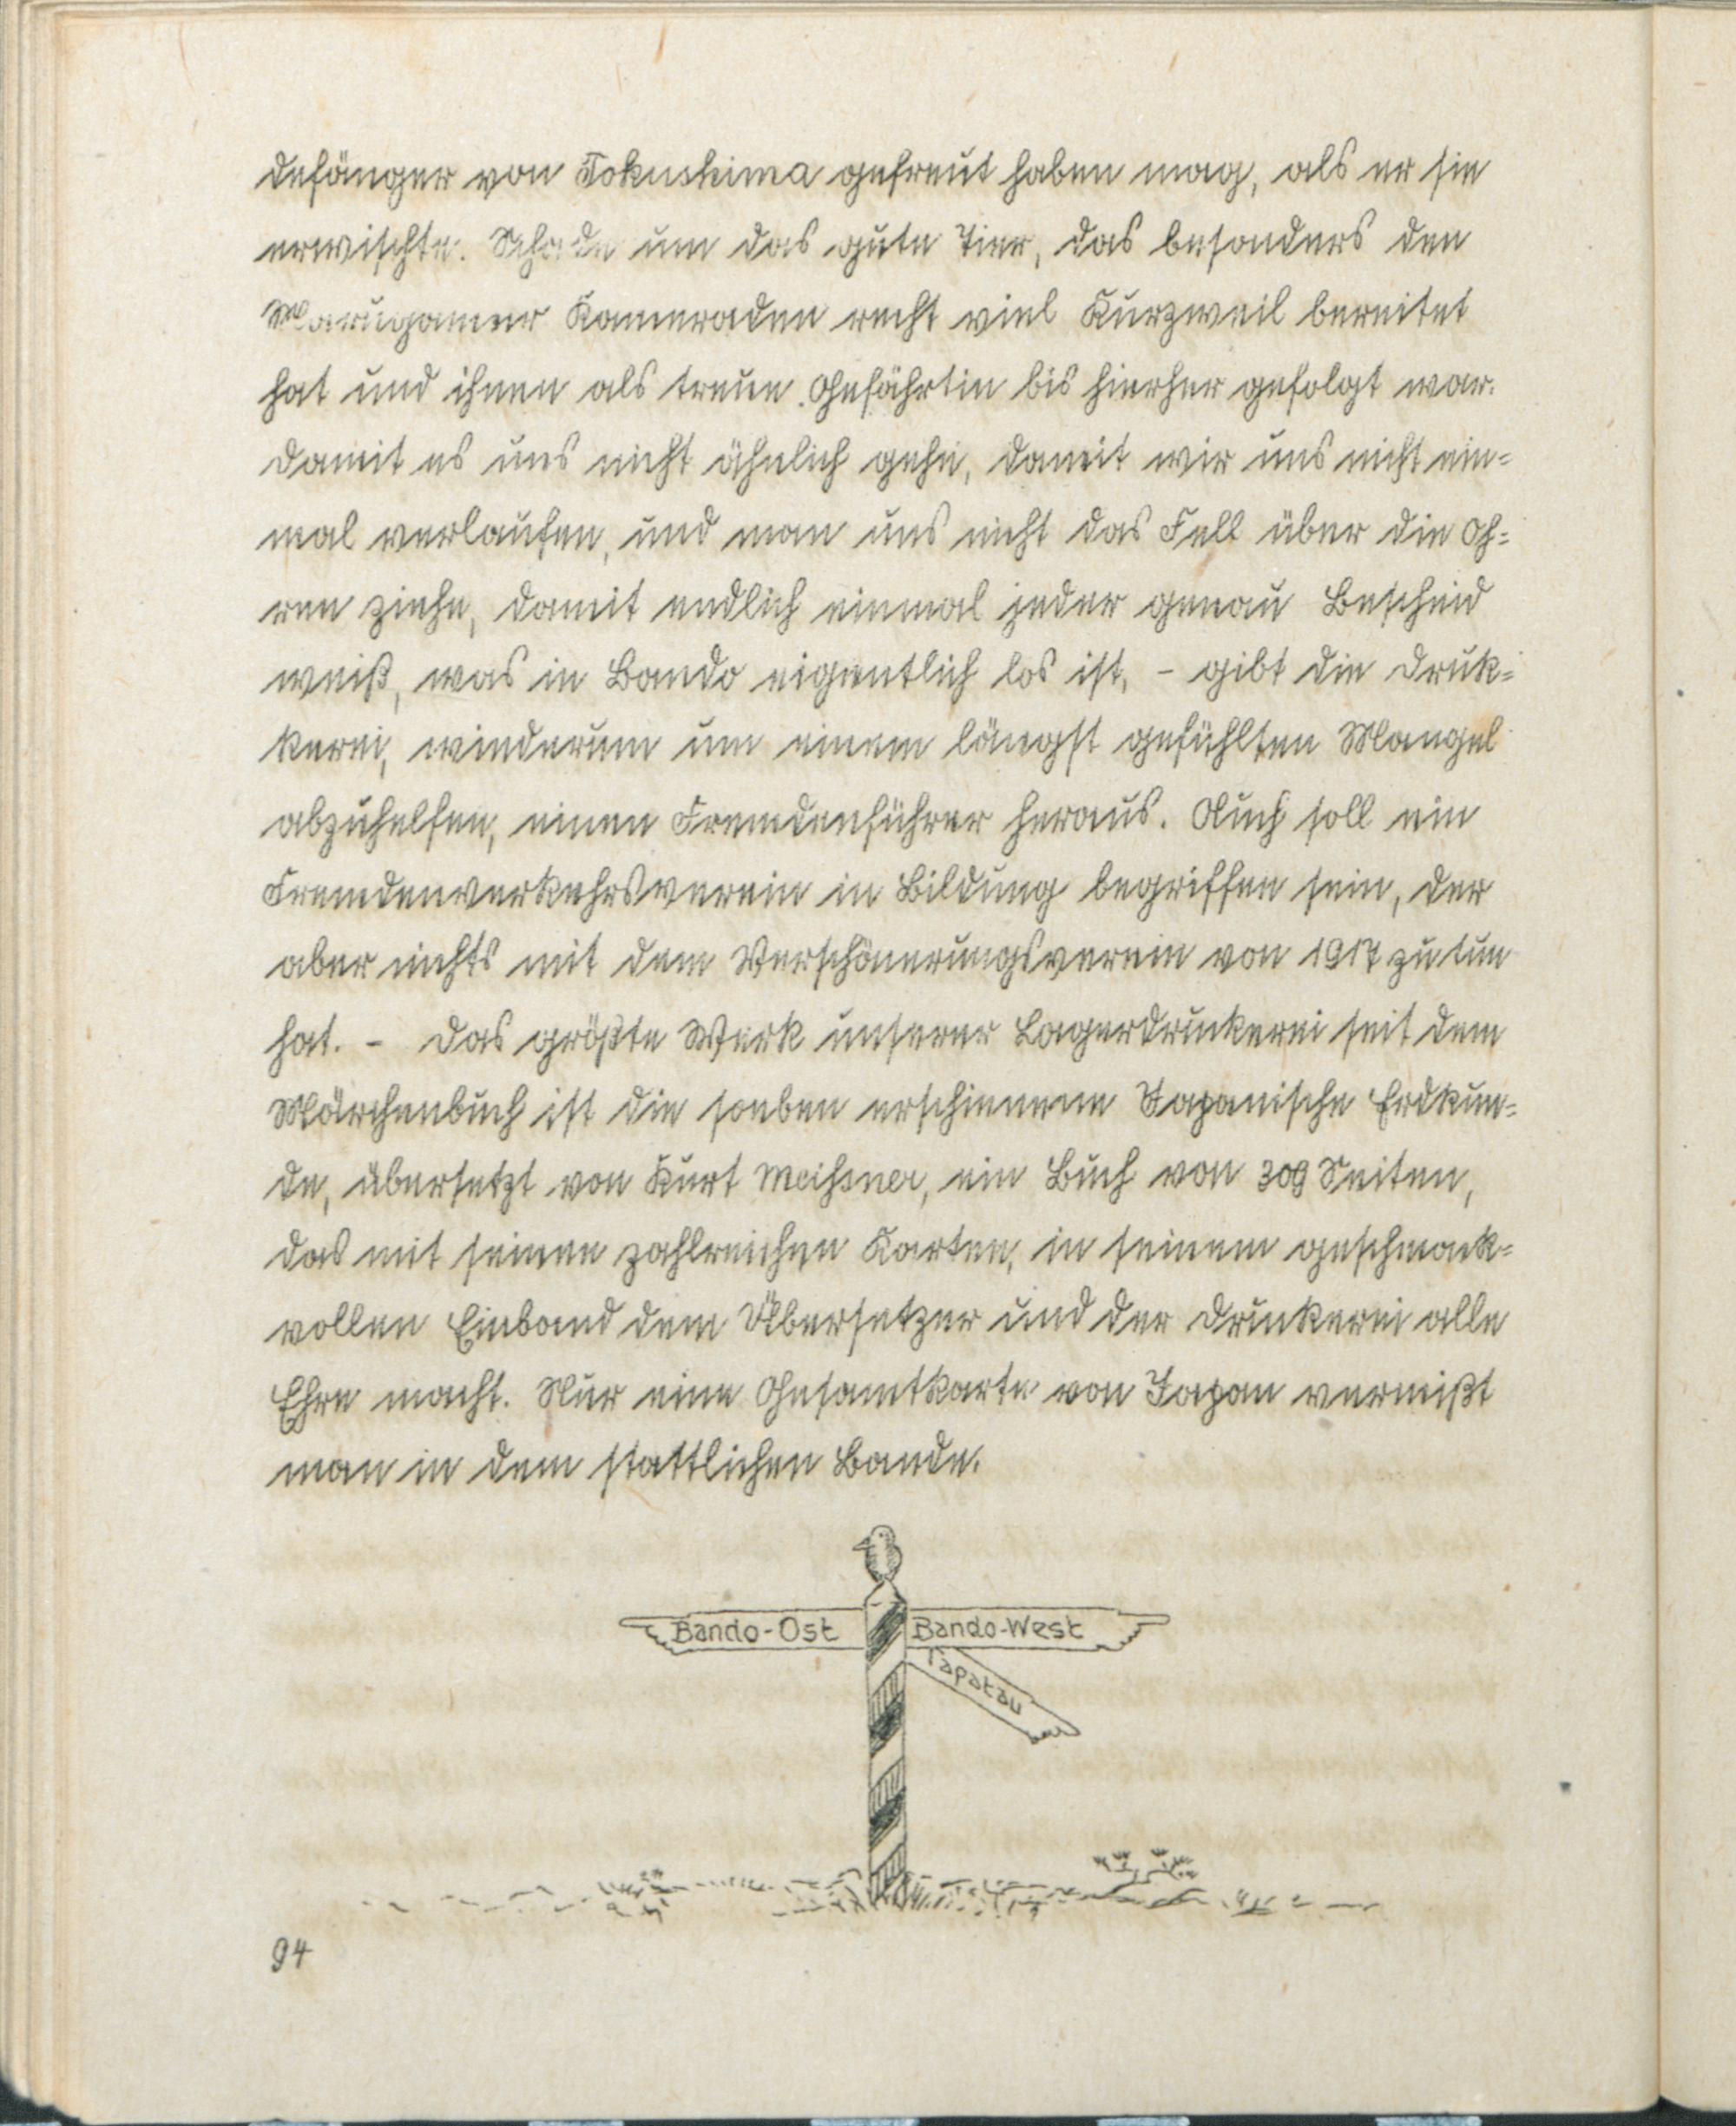 defänger von Tokushima gefreut haben mag, als er sie
erwischte. Schade um das gute Tier, das besonders den
Marugamer Kameraden recht viel Kurzweil bereitet
hat und ihnen als treue Gefährtin bis hierher gefolgt war.
Damit es uns nicht ähnlich gehe, damit wir uns nicht ein=
mal verlaufen, und man uns nicht das Fell über die Oh=
ren ziehe, damit endlich einmal jeder genau Bescheid
weiß, was in Bando eigentlich los ist, - gibt die Druk=
kerei, wiederum um einem längst gefühlten Mangel
abzuhelfen, einen Fremdenführer heraus. Auch soll ein
Fremdenverkehrsverein in Bildung begriffen sein, der
aber nichts mit dem Verschönerungsverein von 1917 zu tun
hat. - Das größte Werk unserer Lagerdruckerei seit dem
Märchenbuch ist die soeben erschienene Japanische Erdkun=
de, übersetzt von Kurt Meißner, ein Buch von 309 Seiten,
das mit seinen zahlreichen Karten, in seinem geschmack=
vollen Einband dem Übersetzer und der Druckerei alle
Ehre macht. Nur eine Gesamtkarte von Japan vermißt
man in dem stattlichen Bande.
Bando-Ost Bando-West
Tapatau
94